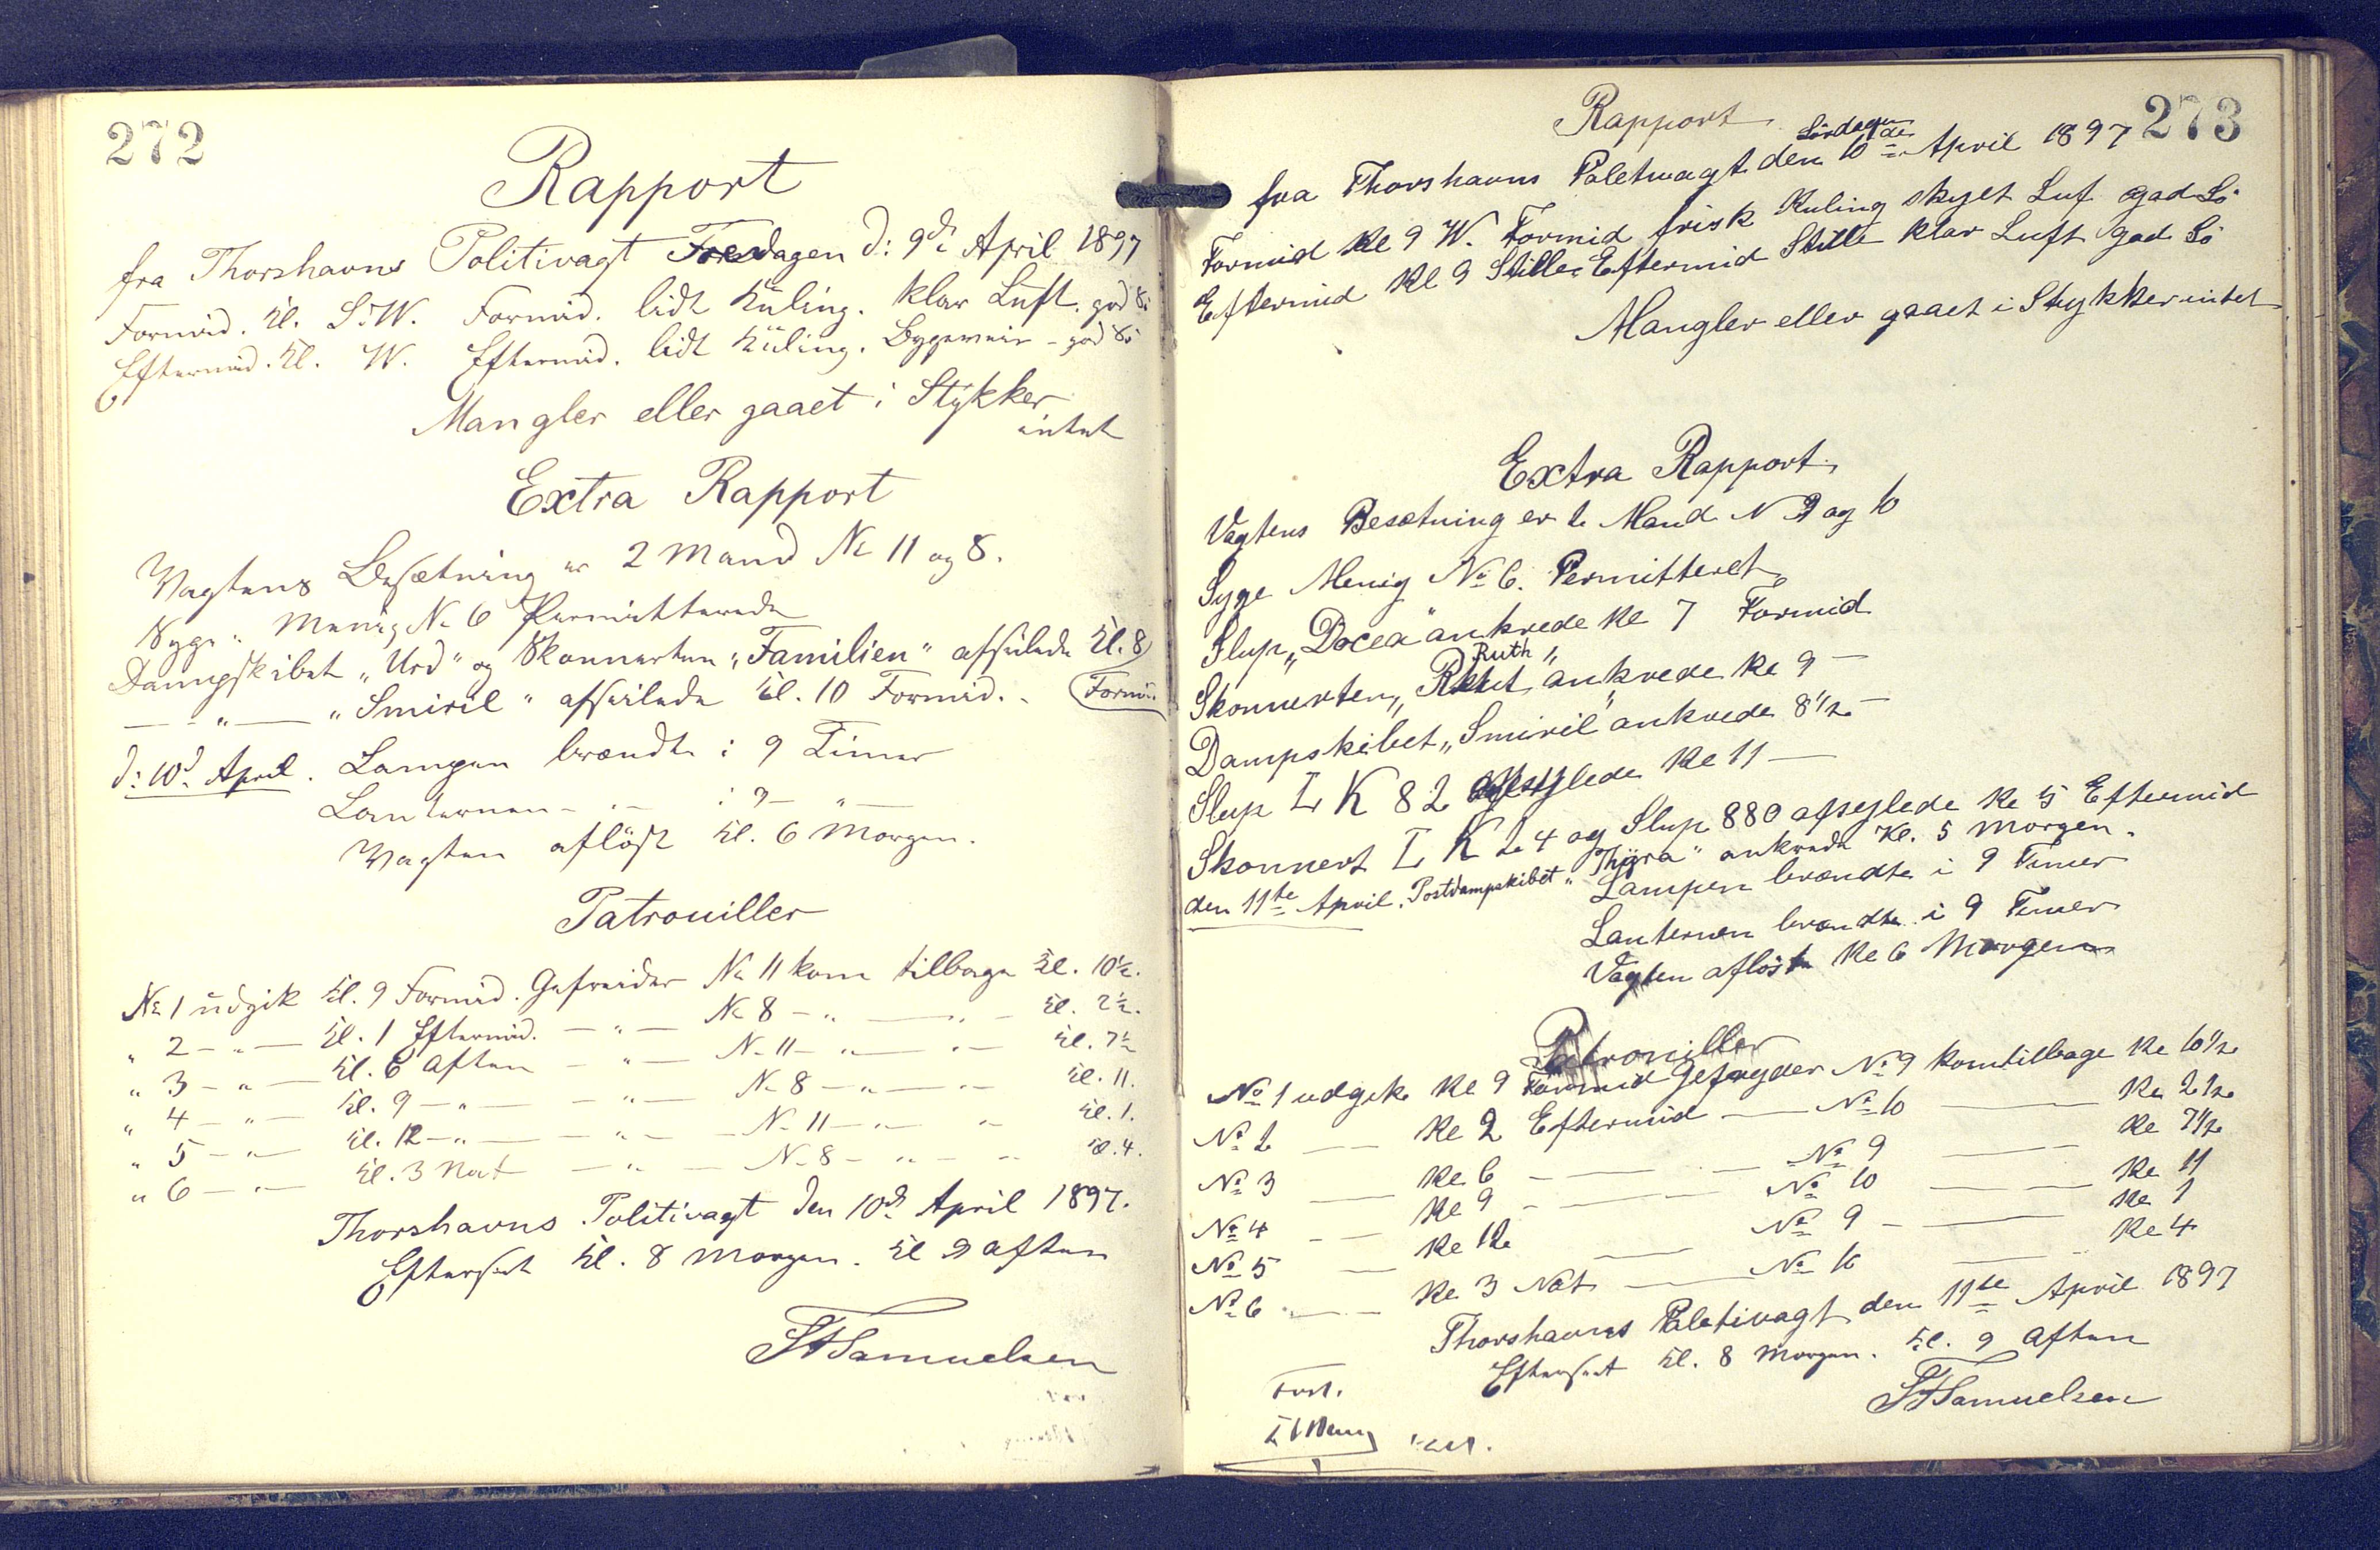 272
Rapport
fra Thorshavns Politivagt Fredagen d: 9de April 1897
Formid. Kl. S.W. Formid. lidt Kuling. klar Luft. god Sö
Eftermid. Kl. W. Eftermid. lidt Kuling. Bygeveir - god Sö
Mangler eller gaaet i Stykker
intet
Extra Rapport
Vagtens Besætning er 2 Mand No 11 og 8.
Syge: Menig No 6 Permitterede
Dampskibet „Urd" og Skonnerten „Familien" afseilede Kl. 8
— " — „Smiril" afseilede Kl. 10 Formid. - Formid.
d: 10de April. Lampen brændte i 9 Timer
Lanternen - " - i 9 - " —
Vagten aflöst Kl. 6 Morgen.
Patrouiller
No 1 udgik Kl. 9 Formid. Gefreider No 11 kom tilbage Kl. 10½.
" 2 - " — Kl. 1 Eftermid. — " — No 8 - " — " - Kl. 2½.
" 3 - " — Kl. 6 Aften — " — No 11 - " — " - Kl. 7½
" 4 - " — Kl. 9 - " — — " — No 8 - " — " - Kl. 11.
" 5 - " — Kl. 12 - " — — " — No 11 - " — " - Kl. 1.
" 6 - " — Kl. 3 Nat — " — No 8 - " — " - Kl. 4.
Thorshavns Politivagt den 10de April 1897.
Efterseet Kl. 8 Morgen. Kl 9 Aften
Samuelsen
273
Rapport
Lördagen
fra Thorshavns Poletivagt den 10de April 1897
Formid Kl 9 W. Formid frisk Kuling skyet Luf god Sö
Eftermid Kl 9 Stille Eftermid Stille klar Luft god Sö
Mangler eller gaaet i Stykker intet
Extra Rapport
Vagtens Besætning er 2 Mand N 9 og 10
Syge Menig No 6. Permitteret
Slup „Docea" ankrede Kl 7 Formid
Ruth
Skonnerten „ " ankrede Kl 9 —
Dampskibet „Smiril" ankrede 8½ —
Slup L K 82 afseglede Kl 11 —
Skonnert L K 24 og Slup 880 afseglede Kl 5 Eftermid
den 11te April. Postdampskibet „Thyra" ankrede Kl. 5 Morgen.
Lampen brændte i 9 Timer
Lanternen brændte i 9 Timer
Vagten aflöst Kl 6 Morgen
Patrouiller
No 1 udgik Kl 9 Formid Gefreyder No 9 kom tilbage Kl 10½
No 2 — Kl 2 Eftermid — No 10 — Kl 2½
No 3 — Kl 6 — — No 9 — Kl 7½
No 4 — Kl 9 — — No 10 — Kl 11
No 5 — Kl 12 — No 9 — Kl 1
No 6 — Kl 3 Nat — No 10 — Kl 4
Thorshavns Poletivagt den 11te April 1897
Efterseet Kl. 8 Morgen. Kl. 9 Aften
Samuelsen